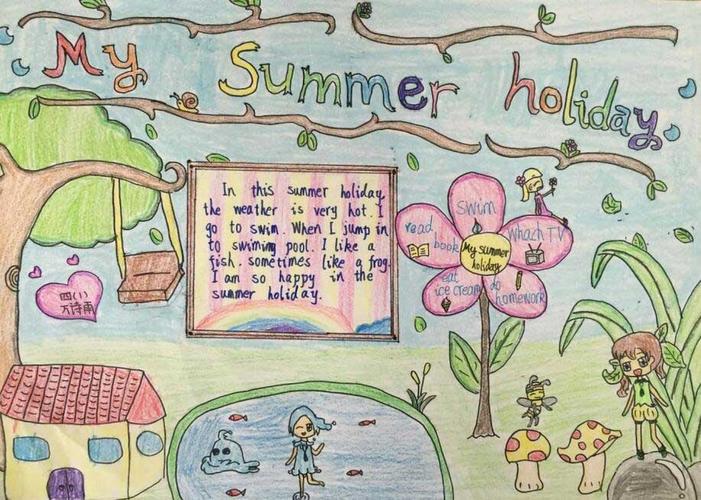 My Summer holiday
In this summer holiday,
the weather is very hot. I
go to swim. When I jump in
to swiming pool. I like a
fish. sometimes like a frog.
I am so happy in the
summer holiday.
swim
read
book
whach TV
My summer
holiday
eat
ice cream
do
homework
四(1)
方诗雨